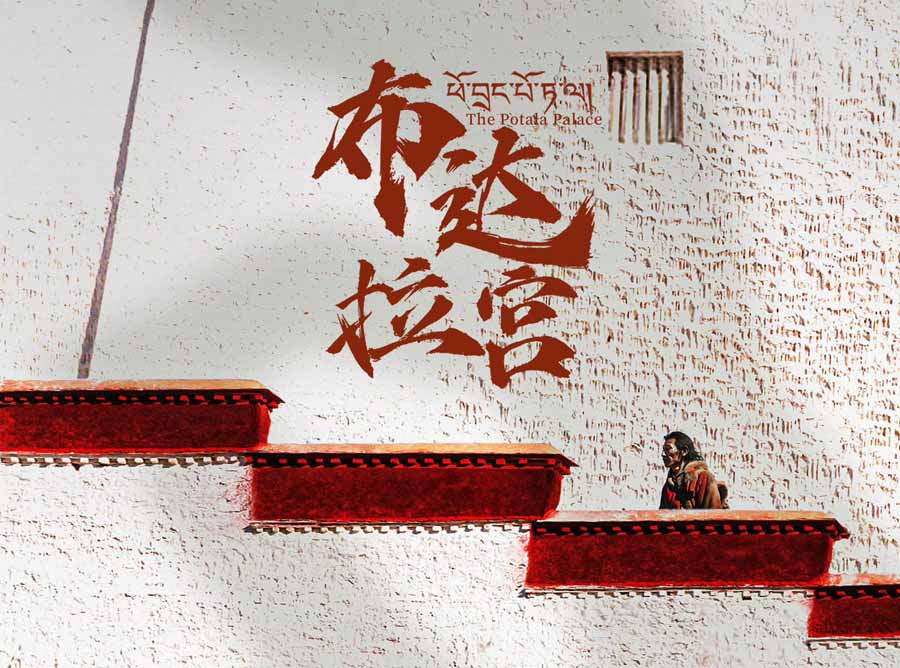 布达
拉宫
ཕོ་བྲང་པོ་ཏ་ལ།
The Potala Palace